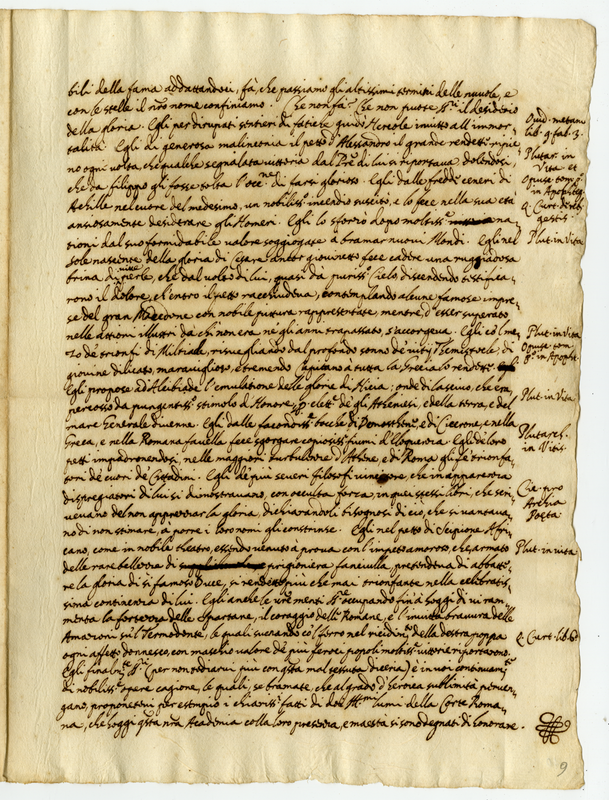 bili della fama addattandoci, fà, che passiamo gli altissimi termini delle nuvole, e
con le stelle il nro nome confiniamo. Che non fà? Che non puote SS.ri il desiderio
della gloria. Egli per dirupati sentieri di fatiche guidò Hercole invitto all'immor-
talità. Egli di generosa malinconia il petto d'Alessandro il grande rendette ripie-
no ogni volta, che qualche segnalata vittoria dal Pre di lui si riportava, dolendosi,
che da filippo gli fosse tolta l'occ.ne di farsi glorioso. Egli dalle fredde ceneri di
Achille nel cuore del medesimo, un nobiliss.o incendio suscitò, e lo fece nella sua età
ansiosamente desiderare gli Homeri. Egli lo sforzò dopo moltiss.e na
tioni dal suo formidabile valore soggiogate à bramar nuovi Mondi. Egli nel
sole nascente della gloria di Cesare ancor giovinetto fece cadere una ruggiadosa
brina di perle, che dal volto di lui, quasi da puriss.o Cielo discendendo testifica-
rono il dolore, ch'entro il petto racchiudeva, contemplando alcune famose impre-
se del gran Macedone con nobile pittura rappresentate mentre, d'esser superato
nelle attioni illustri da chi non era nè gli anni trapassato, s'accorgeva. Egli cò 'l me-
zo de trionfi di Milciade, risvegliando dal profondo sonno de vitij Themistocle, di
giovine dilicato, maraviglioso, e tremendo Capitano a tutta la Grecia lo rendette.
Egli propose ad Alcibiade l'emulatione delle glorie di Nicia; onde la scuò, che era
percosso da pungentiss.o stimolo d'Honore, eletto de gli Atheniesi, e della terra, e del
mare Generale divenne. Egli dalle facondiss.e bocche di Demosthene, e di Cicerone, e nella
Greca, e nella Romana favella fece sgorgare copiosiss.i fiumi d'Eloquenza. Egli de loro
petti impadronendosi, nelle maggiori turbolenze d'Athene, e di Roma gli fe trionfa-
tori de cuori de Cittadini. Egli de più severi filosofi vincitore, che in apparenza
dispregiatori di lui si dimostravano, con occulta forza, in que stessi libri, che scri-
vevano del non apprezzar la gloria, dichiarandoli bisognosi di ciò, che si vantava-
no di non stimare, à porre i loro nomi gli constrinse. Egli nel petto di Scipione Afri-
cano, come in nobile theatro, essendo venuto à prova con l'impeto amoroso, che armato
delle rare bellezze di prigioniera fanciulla, pretendeva di abbatte-
re la gloria di sì famoso Duce, si rendette più che mai trionfante nella celebratis-
sima continenza di lui. Egli anche le menti SS.ri occupando fin à soggi di vi ram-
menta la fortezza delle Spartane, il coraggio delle Romane, e l'invitta bravura delle
Amazoni sù 'l Termodonte, le quali sucando cò 'l ferro nel recidim.o della destra poppa
ogni affetto donnesco, con maschio valore de più feroci popoli nobiliss.e vittorie riportarono.
Egli finalm.te SS.ri (per non tediarvi più con qsta mal tessuta diceria) è in voi continuam.te
di nobiliss.e opere cagione, le quali, se bramate, che al grado d'heroica sublimità perven-
gano, proponetevi per essempio i chiariss.i fatti di dote Ill.mi lumi della Corte Roma-
na, che hoggi qsta nra Academia colla loro presenza, e maestà si sono degnati di honorare.
Ouid. metam.
lib. 9. fab. 3.
Plutar. in
Vita et
Opusc. tom. p.o
in Apopht.
Q. Curt. de reb.
gestis
Plut. in Vita
Plut. in Vita
Opusc. tom.
p.o in Apopht.
Plut. in Vita
Plutarch.
in Vitis
Cic. pro
Archia
Poeta
Plut. in vita
Q. Curt. lib. 6.
9